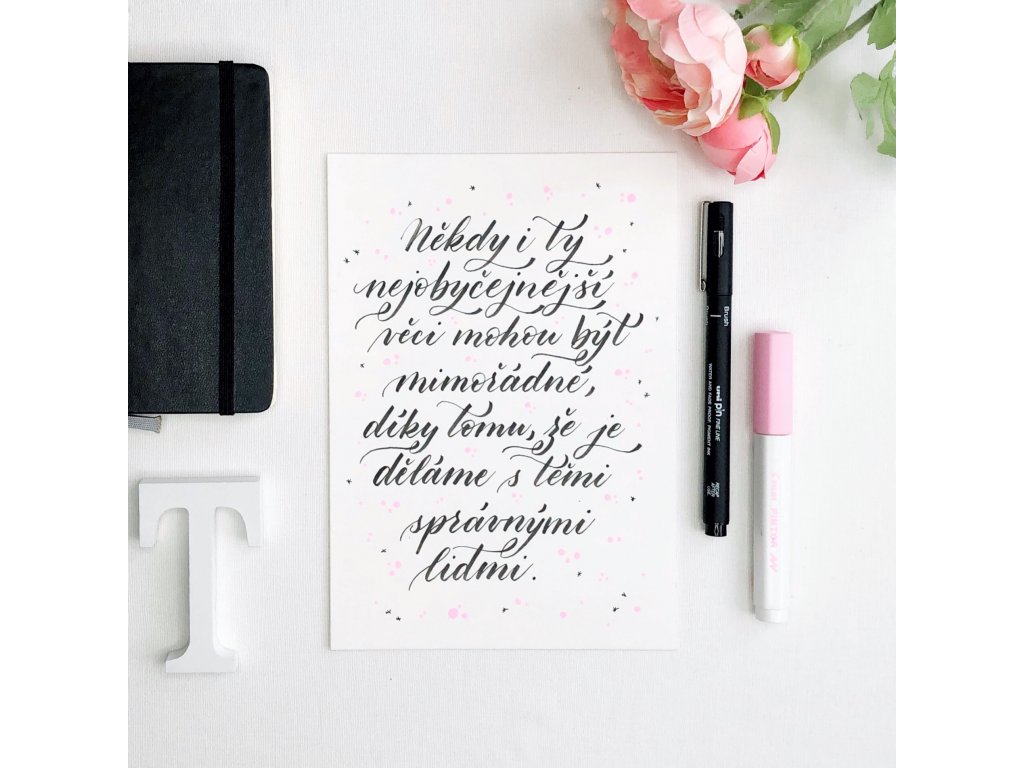 Někdy i ty
nejobyčejnější
věci mohou být
mimořádné,
díky tomu, že je
děláme s těmi
správnými
lidmi.
Brush
uni pin FINE LINE
WATER AND FADE PROOF PIGMENT INK
PINTOR
T